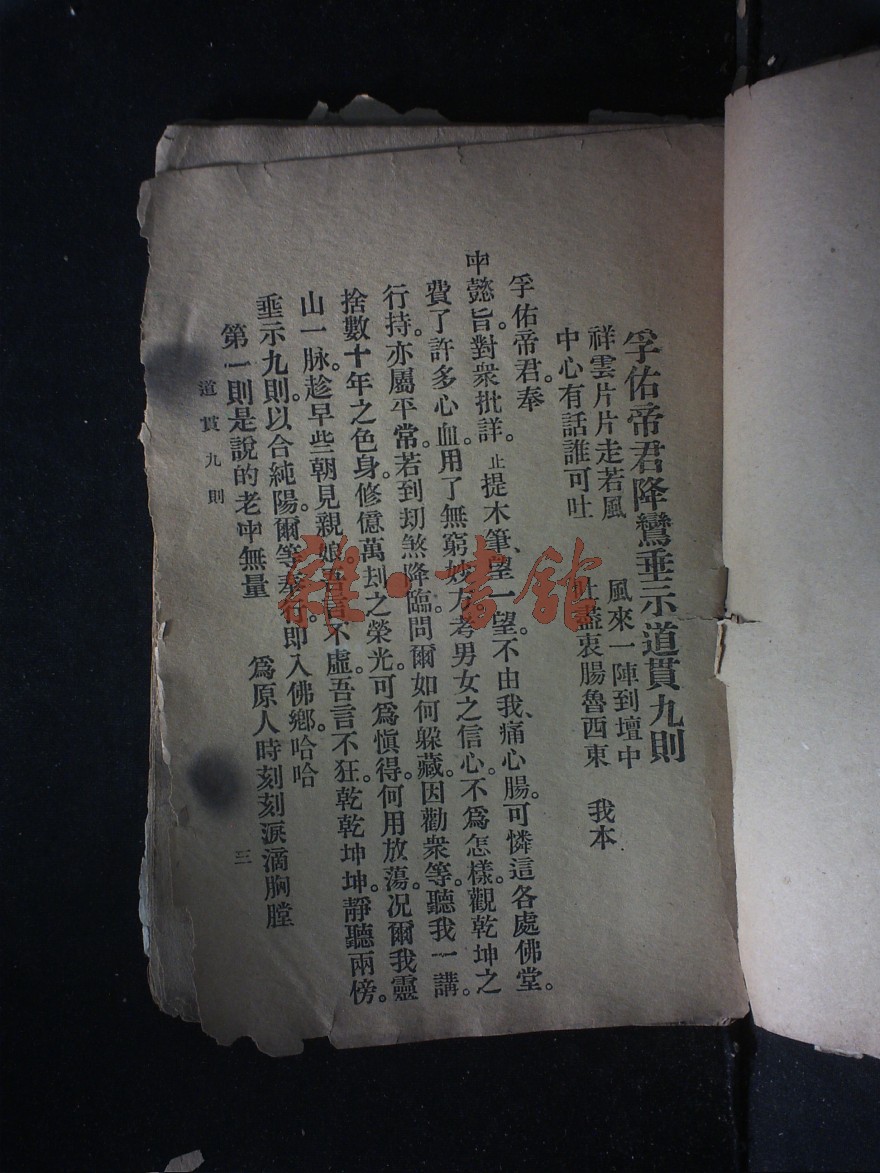 孚佑帝君降鸞垂示道貫九則
祥雲片片走若風 風來一陣到壇中
中心有話誰可吐 吐盡衷腸魯西東 我本
孚佑帝君。奉
申懿旨。對衆批詳。止提木筆、望一望。不由我、痛心腸。可憐這各處佛堂。
費了許多心血。用了無窮妙方。考男女之信心。不爲怎樣。觀乾坤之
行持。亦屬平常。若到刧煞降臨。問爾如何躲藏。因勸衆等。聽我一講。
捨數十年之色身。修億萬刦之榮光。可爲愼得。何用放蕩。况爾我靈
山一脉。趁早些朝見親娘。吾言不虛。吾言不狂。乾乾坤坤。靜聽兩傍。
垂示九則。以合純陽。爾等奉行。即入佛鄉。哈哈
第一則是說的老申無量 爲原人時刻刻淚滴胸膛
道貫九則 三
雜·書館